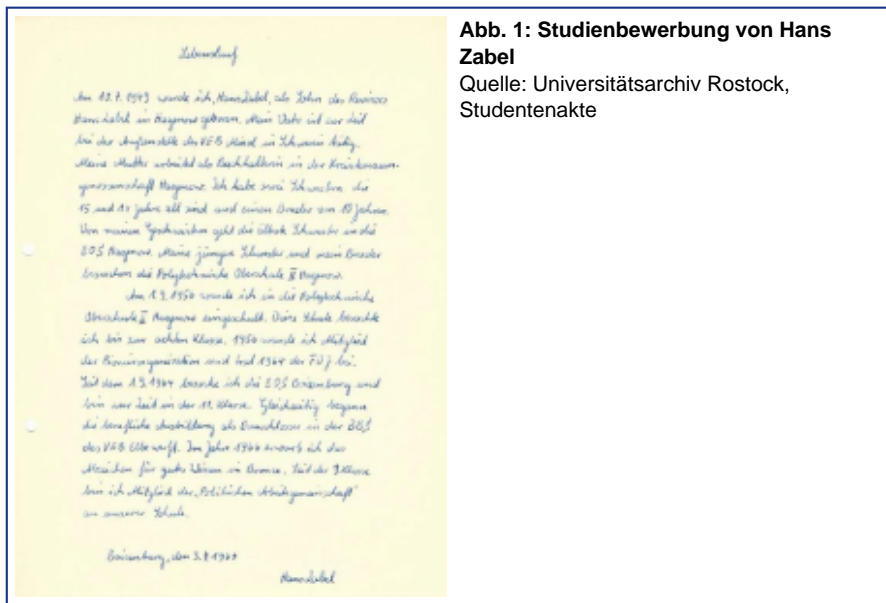 Lebenslauf
Am 13.7.1949 wurde ich, Hans Zabel, als Sohn des Revisors
Hans Zabel in Hagenow geboren. Mein Vater ist zur Zeit
bei der Außenstelle des VEB in Schwerin tätig.
Meine Mutter arbeitet als Buchhalterin in der
Hagenow. Ich habe zwei Schwestern die
15 und Jahre alt sind und einen Bruder von 10 Jahren.
Von meinen Geschwistern geht die älteste Schwester in die
EOS Hagenow. Meine jüngere Schwester und mein Bruder
besuchen die Polytechnische Oberschule II Hagenow.
Am 1.9.1956 wurde ich in die Polytechnische
Oberschule II Hagenow eingeschult. Diese Schule besuchte
ich bis zur achten Klasse. wurde ich Mitglied
der Pionierorganisation und trat 1964 der FDJ bei.
Seit dem 1.9.1964 besuche ich die EOS Boizenburg und
bin zur Zeit in der 11. Klasse. Gleichzeitig begann
die berufliche Ausbildung als in der BBS
des VEB Elbewerft. Im Jahre 1966 erwarb ich das
Abzeichen für gutes Wissen in Bronze. Seit der 9. Klasse
bin ich Mitglied der „Politischen Arbeitsgemeinschaft"
an unserer Schule.
Boizenburg, den
Hans Zabel
Abb. 1: Studienbewerbung von Hans
Zabel
Quelle: Universitätsarchiv Rostock,
Studentenakte